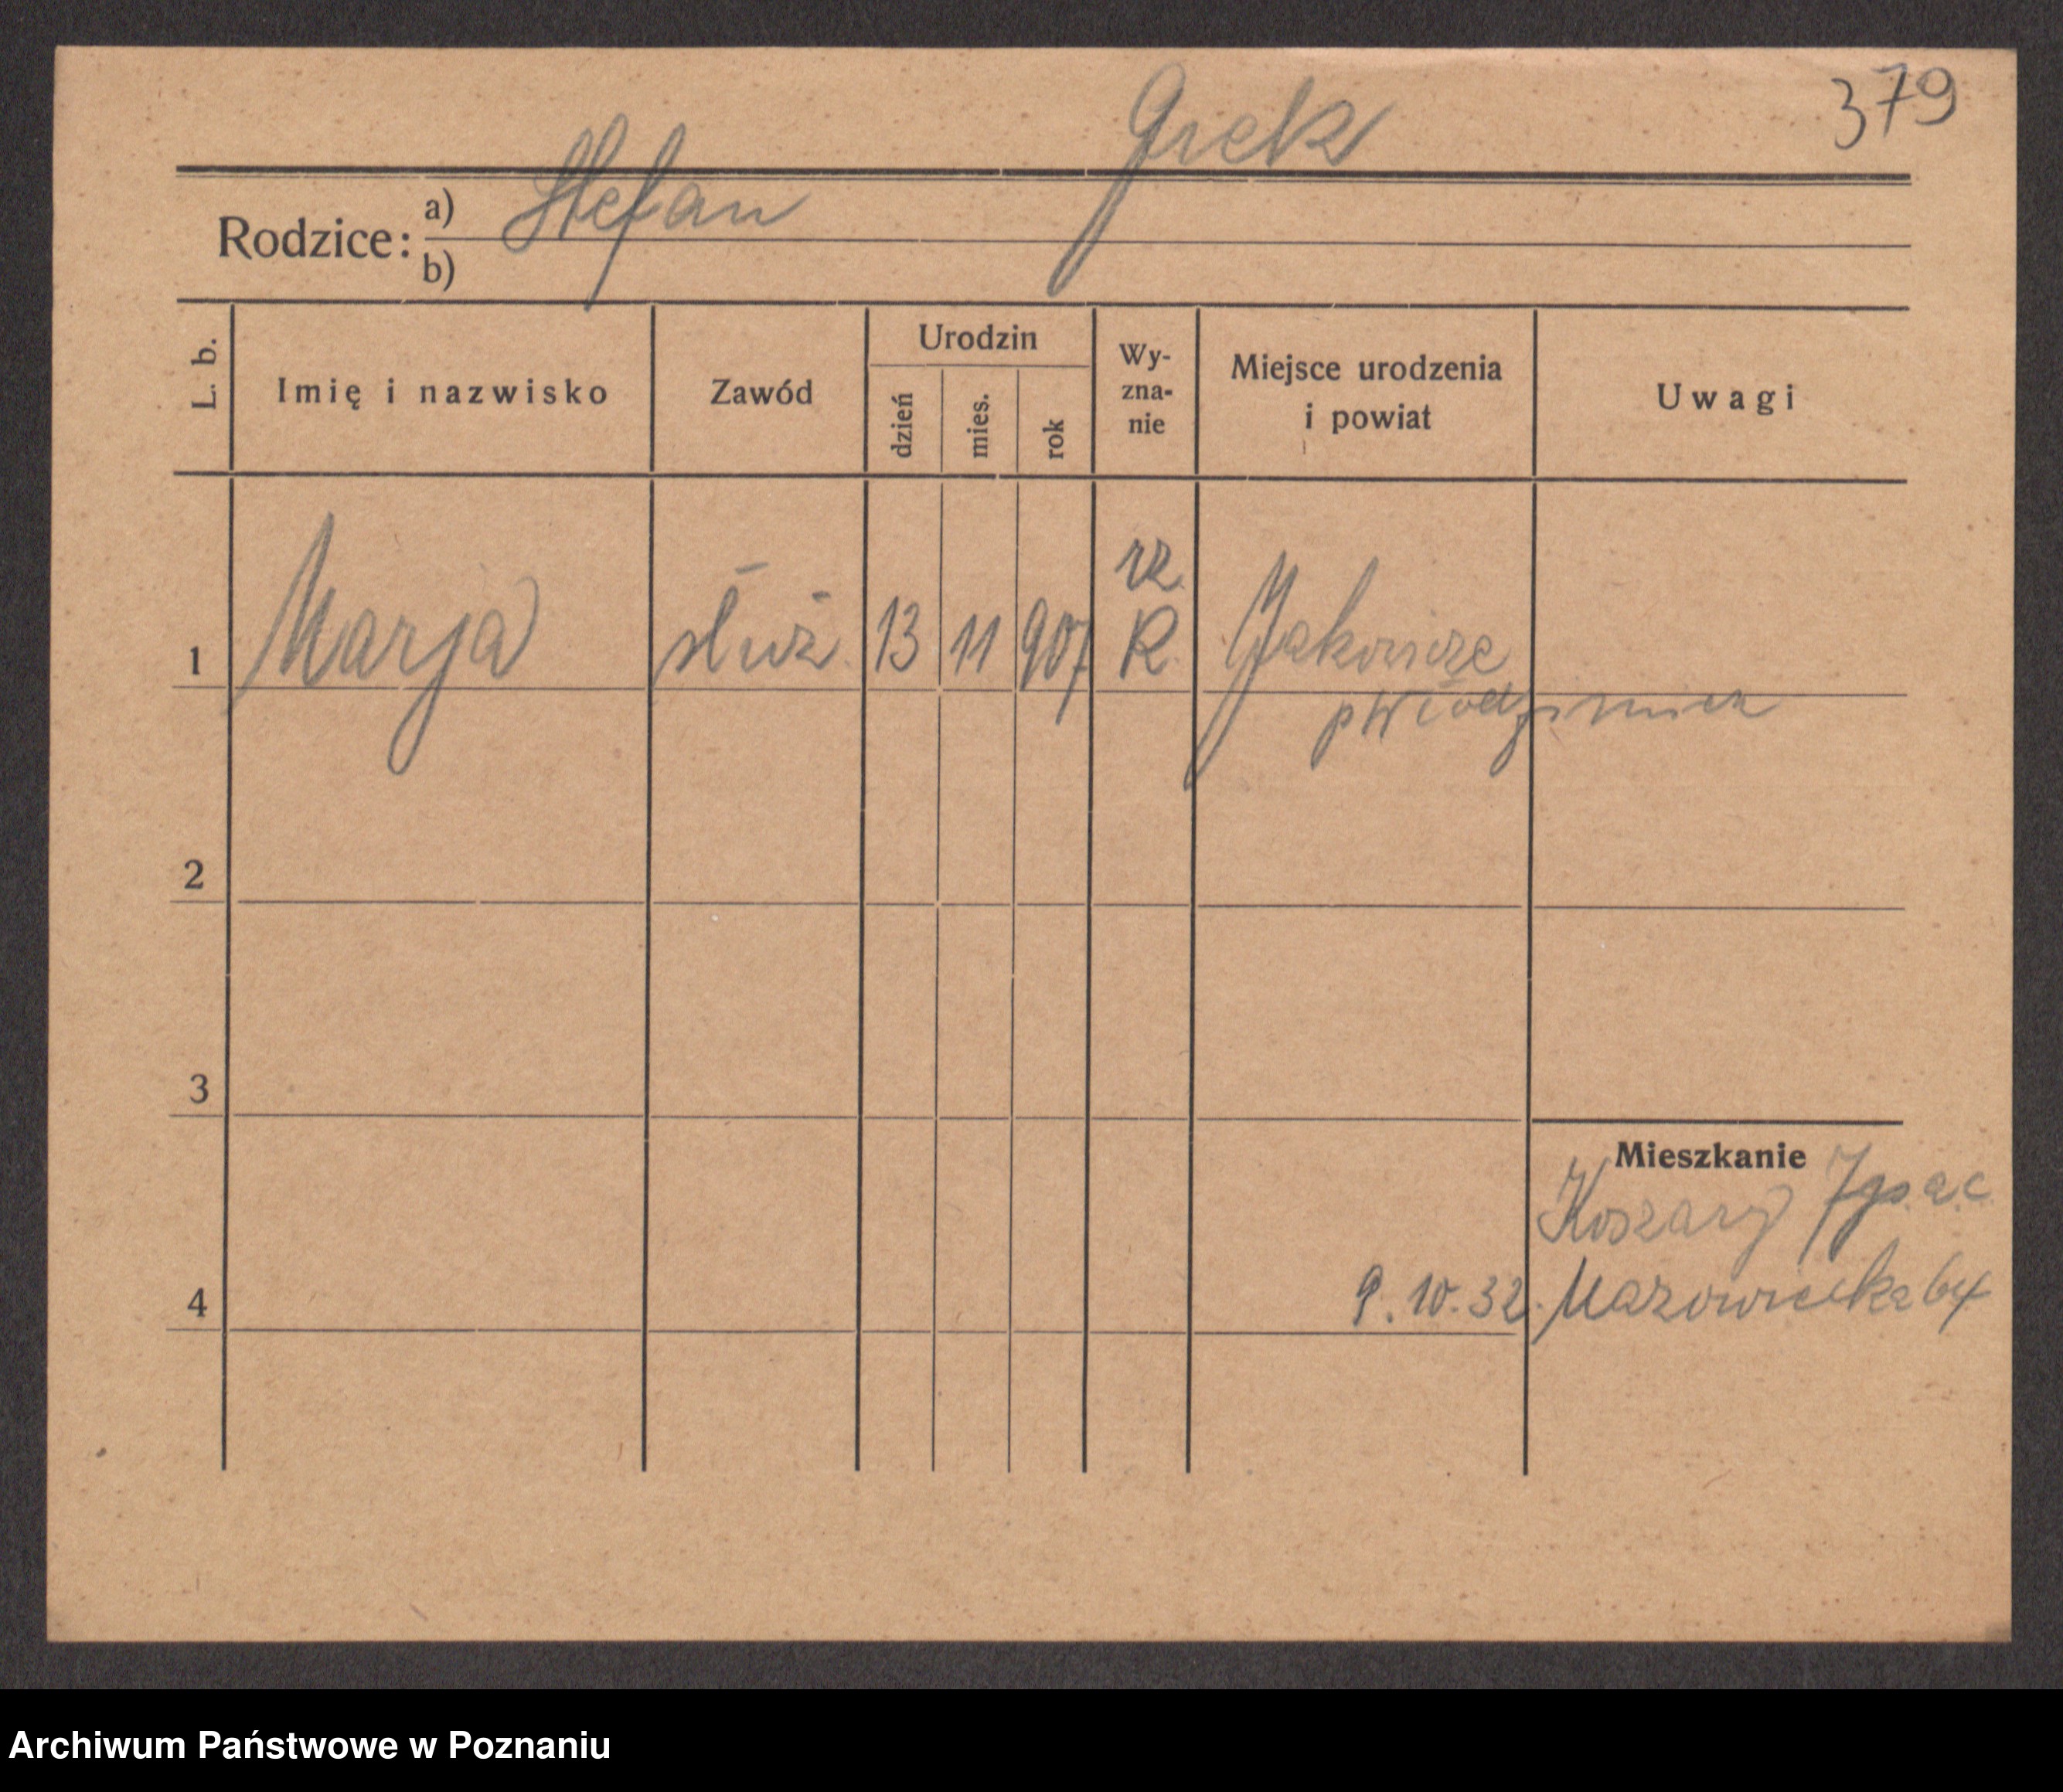 379
Grek
Rodzice: a) Stefan
b)
L. b. Imię i nazwisko Zawód Urodzin dzień mies. rok Wy-zna-nie Miejsce urodzenia i powiat Uwagi
1 Marja służ. 13 11 907 rz. R. Jakowicze
p Włodzimierz
2
3
Mieszkanie
Koszary 7
4 9.10.32. Mazowiecka 64
Archiwum Państwowe w Poznaniu